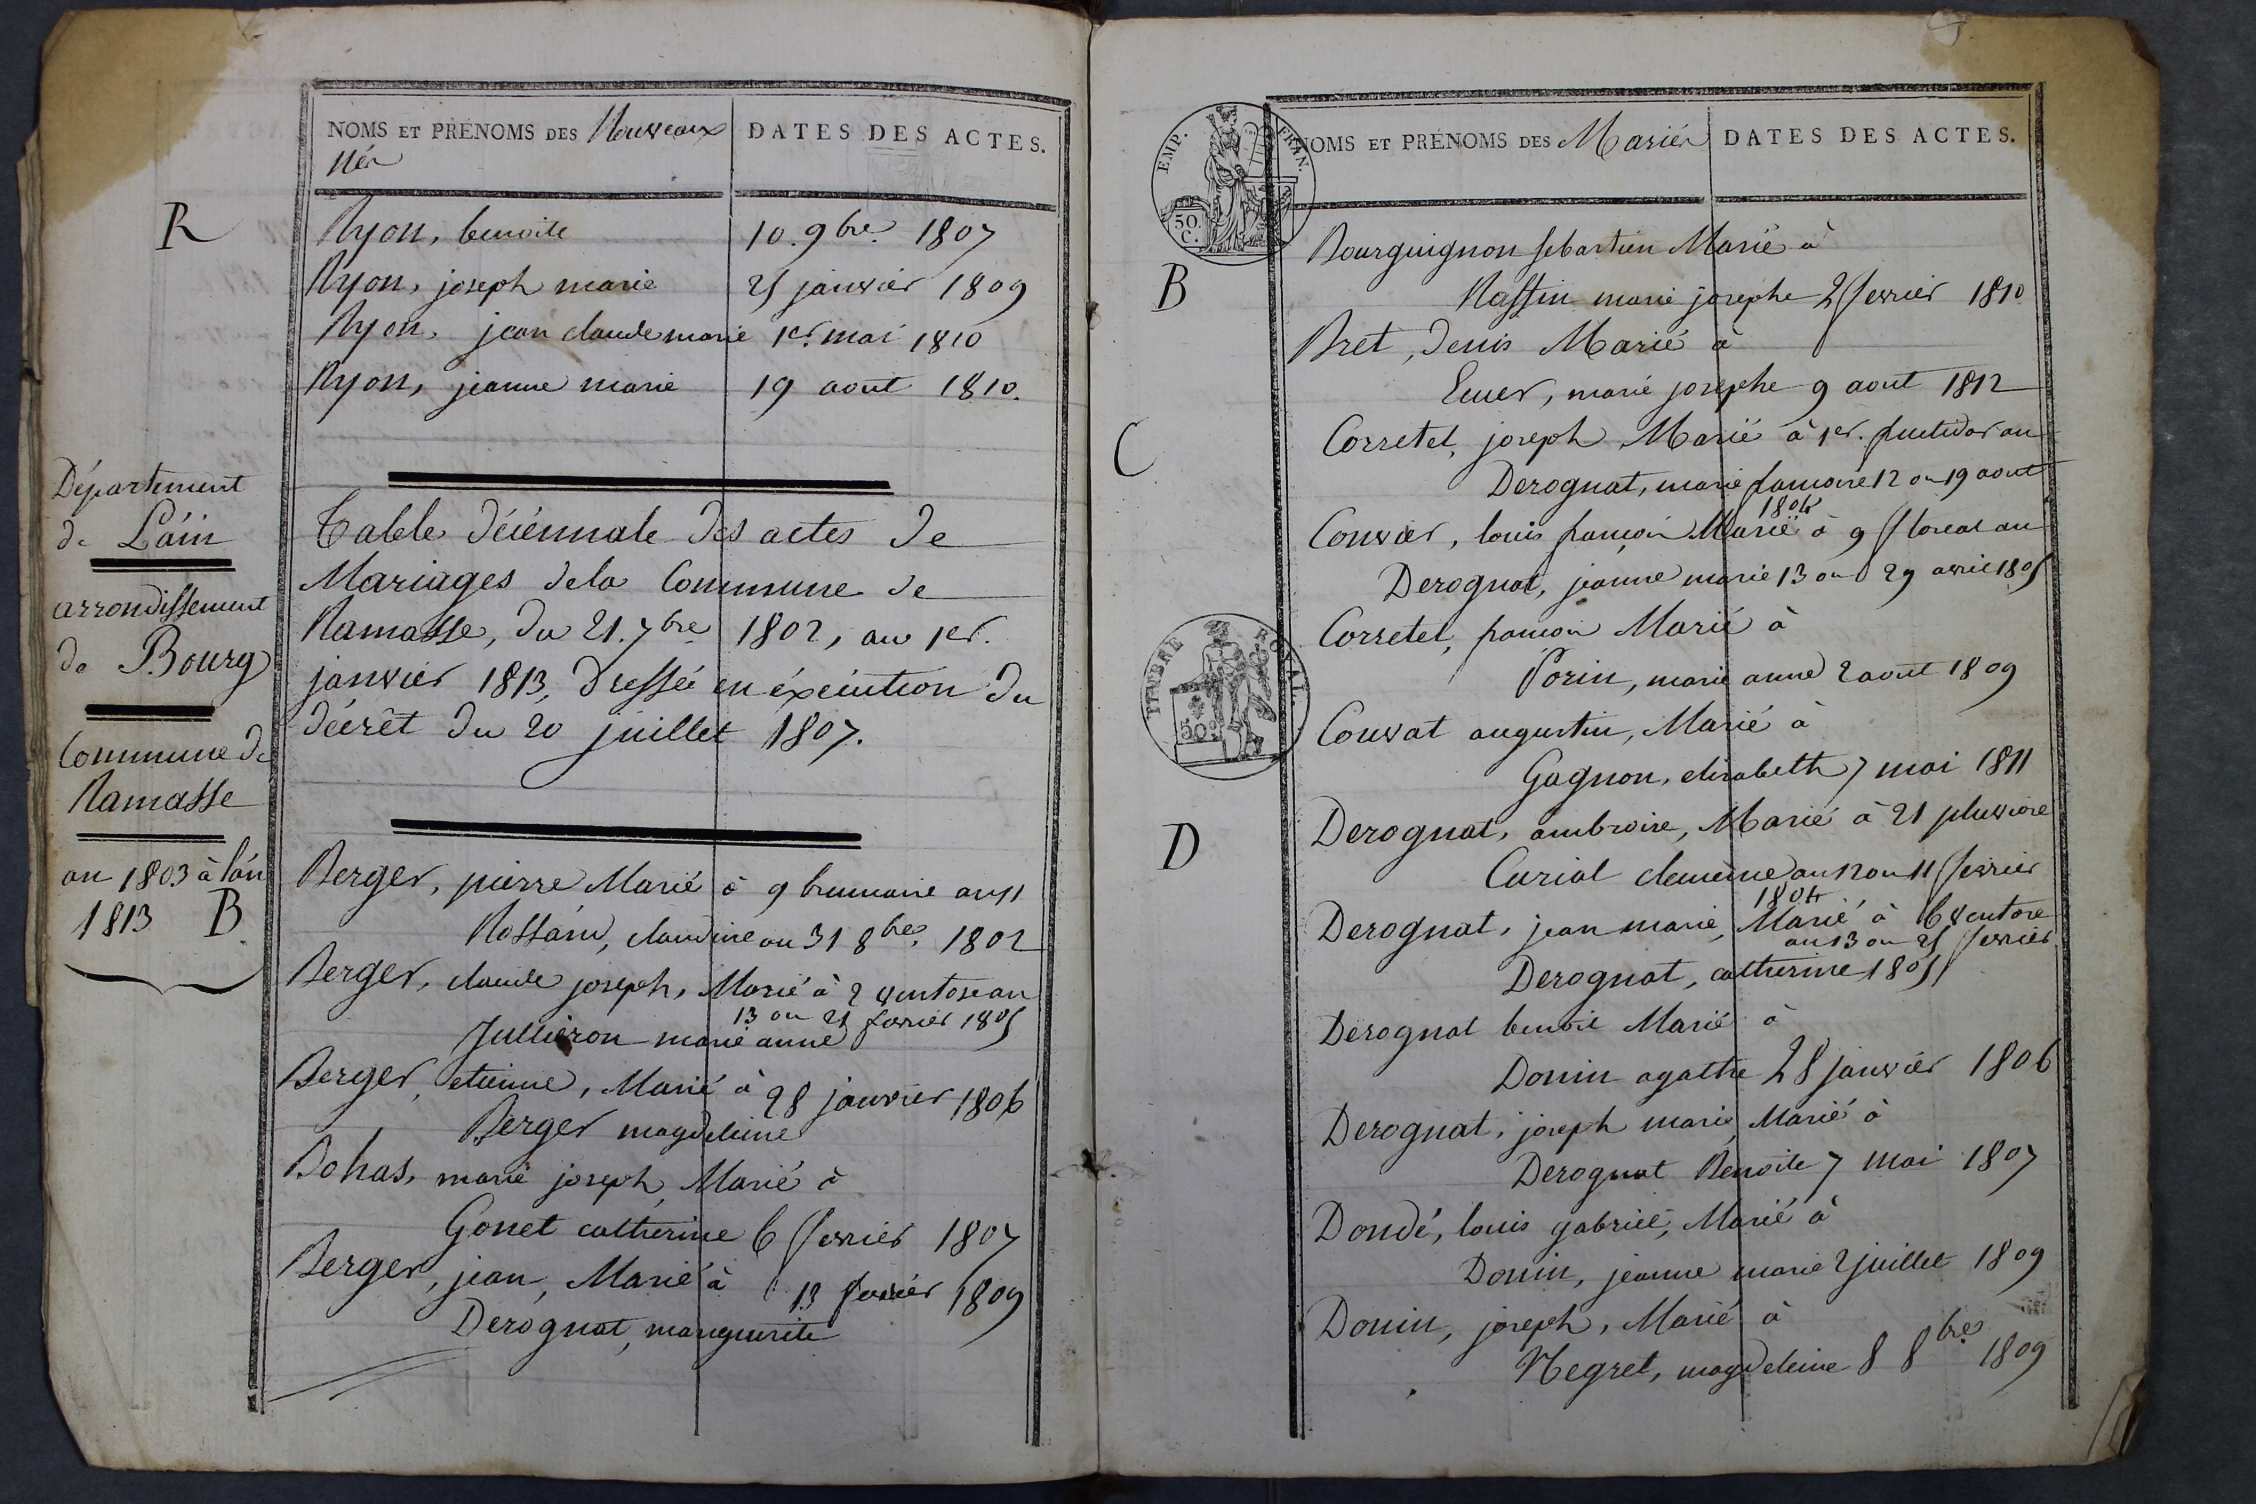 NOMS ET PRÉNOMS DES Nouveaux
Nés
DATES DES ACTES.
R
Ryon, benoite 10. 9bre. 1807
Ryon, joseph marie 25 janvier 1809
Ryon, jean claude marie 1er. mai 1810
Ryon, jeanne marie 19 aout 1810.
Département
de L'áin
arrondissement
de Bourg
Commune de
Ramasse
an 1803 à l'an
1813 B
Table décénnale des actes de
Mariages de la Commune de
Ramasse, du 21. 7bre 1802, au 1er.
janvier 1813, dressée en éxécution du
décrêt du 20 juillet 1807.
Berger, pierre Marié à 9 brumaire an 11
Rossand, claudine ou 31 8bre. 1802
Berger, claude joseph, Marié à 2 ventose an
13 ou 21 fevrier 1805
Jullieron marie anne
Berger, etienne, Marié à 28 janvier 1806
Berger magdeleine
Bohas, marie joseph, Marié à
Gonet catherine 6 fevrier 1807
Berger, jean, Marié à 13 fevrier 1809
Derognat, marguerite
EMP. FRAN.
50.
C.
NOMS ET PRÉNOMS DES Mariés
DATES DES ACTES.
B
Bourguignon sebastien Marié à
Raffin marie josephe 2 fevrier 1810
Bret, denis Marié à
marie josephe 9 aout 1812
C
Corretel, joseph Marié à 1er. fructidor an
Derognat, marie francoise 12 ou 19 aout
1804
Convert, louis françois Marié à 9 floreal an
Derognat, jeanne marie 13 ou 29 avril 1805
TIMBRE ROYAL.
50c
Corretel, françois Marié à
Porin, marie anne 2 aout 1809
Couvat augustin, Marié à
Gagnon, elisabeth 7 mai 1811
D
Derognat, ambroise, Marié à 21 pluviose
Curial clemence an 12 ou 11 fevrier
1804
Derognat, jean marie, Marié à 6 ventose
an 13 ou 25 fevrier
Derognat, catherine 1805
Derognat benoit Marié à
Donin agathe 28 janvier 1806
Derognat, joseph marie, Marié à
Derognat Benoite 7 mai 1807
Dondé, louis gabriel, Marié à
Donin, jeanne marie 2 juillet 1809
Donin, joseph, Marié à
Negret, magdeleine 8 8bre 1809